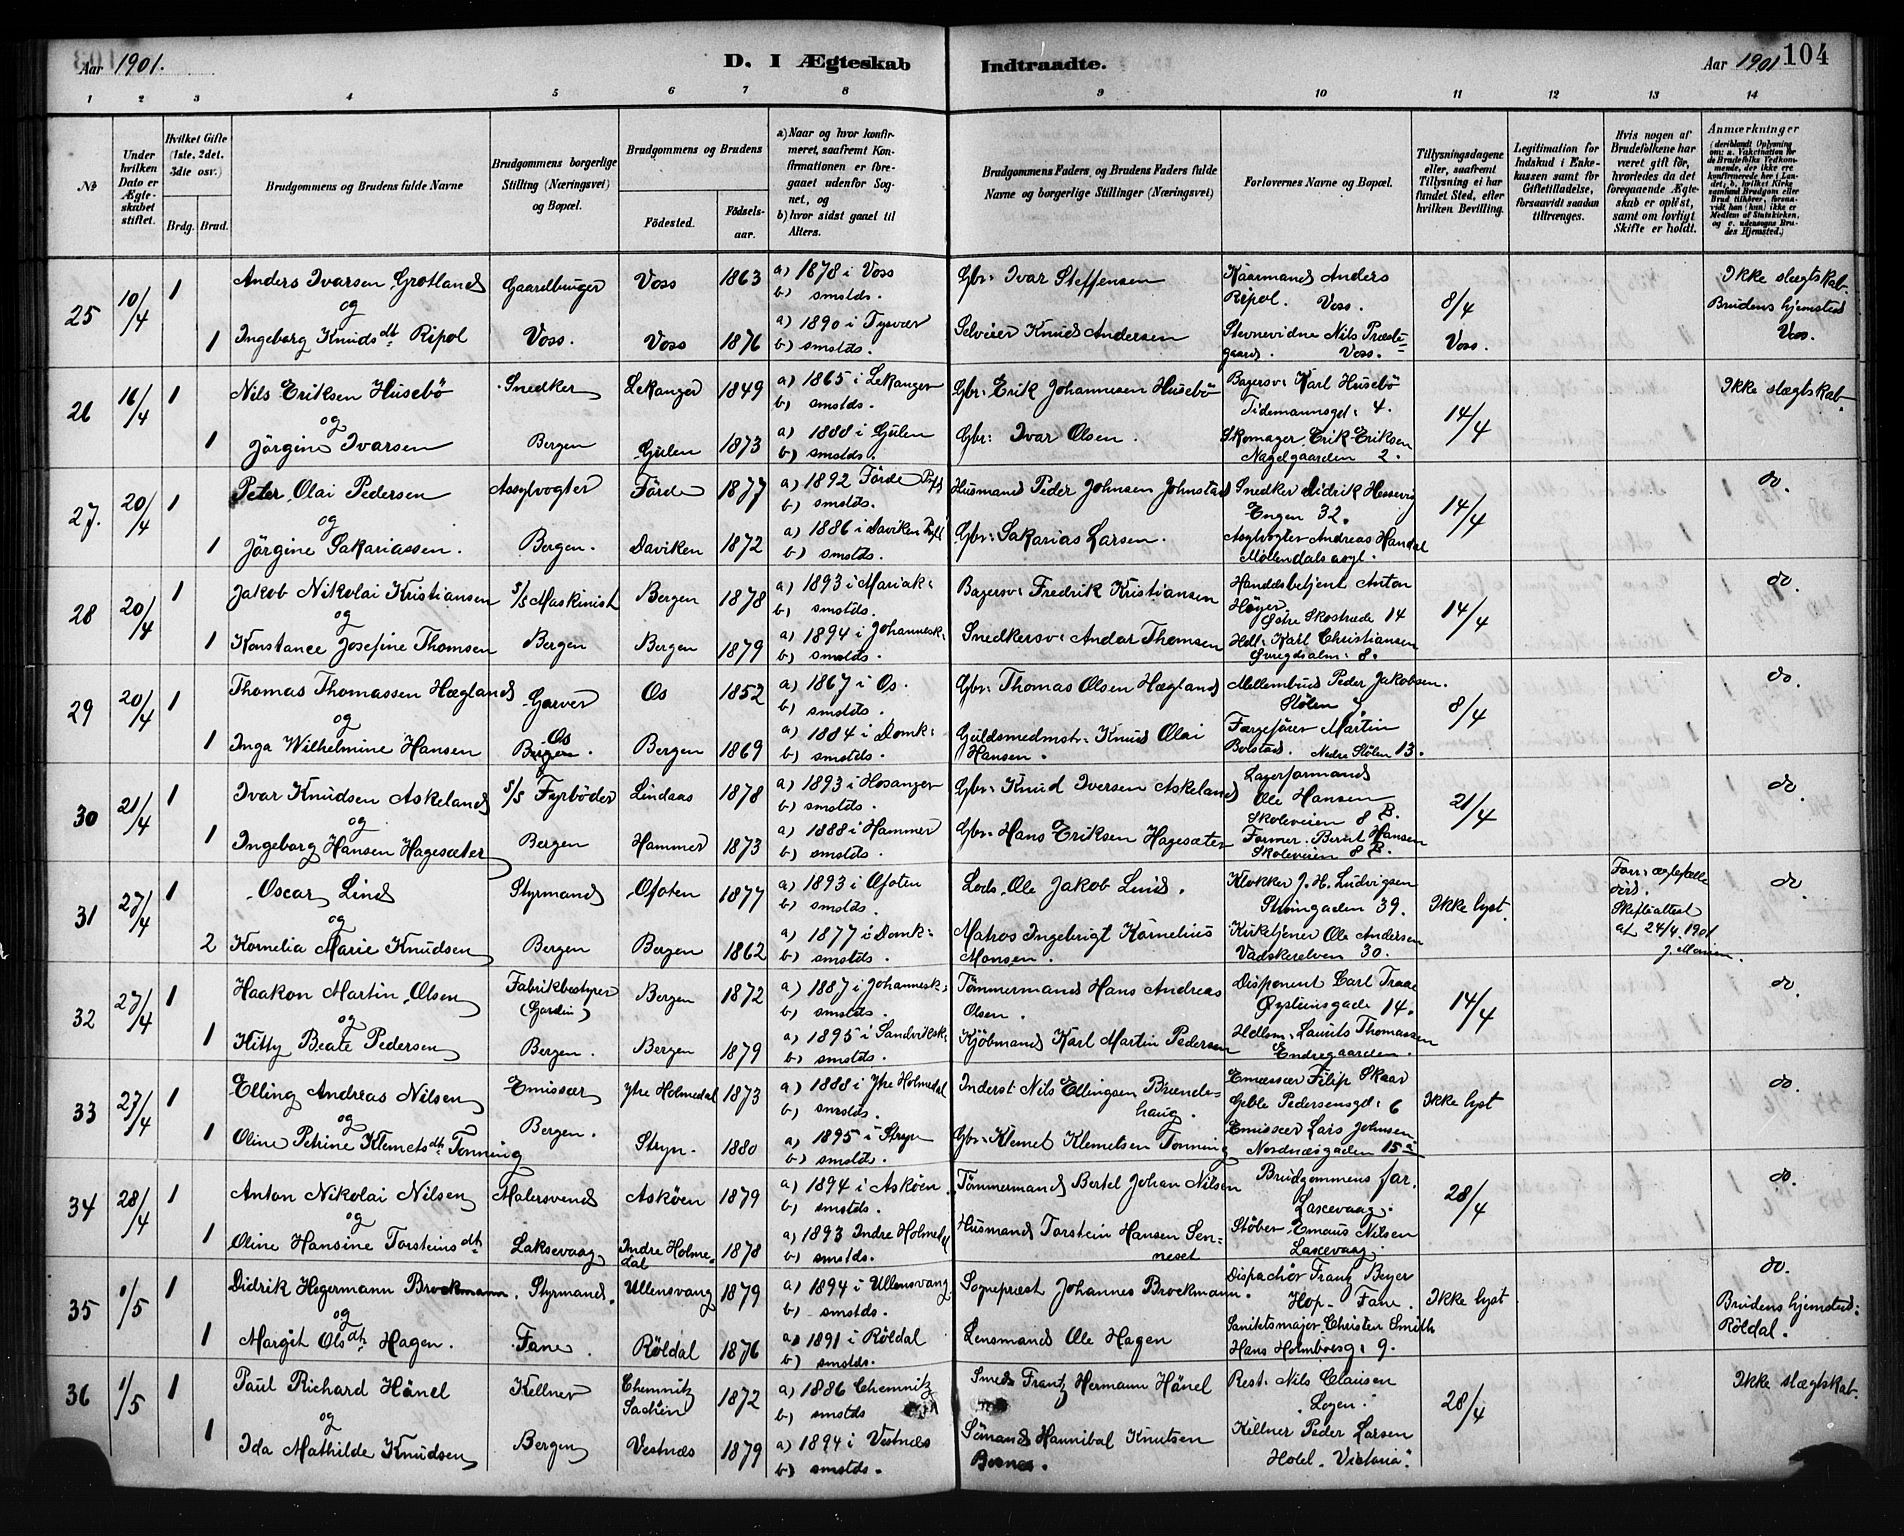 Aar 1901. D. I Ægteskab Indtraadte. Aar 1901 104
1 2 3 4 5 6 7 8 9 10 11 12 13 14
No
Under hvilken Dato er Ægteskabet stiftet.
Hvilket Gifte (1ste, 2det, 3die osv.)
Brdg. Brud.
Brudgommens og Brudens fulde Navne
Brudgommens borgerlige Stilling (Næringsvei) og Bopæl.
Brudgommens og Brudens
Fødested. Fødselsaar.
a) Naar og hvor konfirmeret, saafremt Konfirmationen er foregaaet udenfor Sognet, og
b) hvor sidst gaaet til Alters.
Brudgommens Faders og Brudens Faders fulde Navne og borgerlige Stillinger (Næringsvei)
Forlovernes Navne og Bopæl.
Tillysningsdagene eller, saafremt Tillysning ei har fundet Sted, efter hvilken Bevilling.
Legitimation for Indskud i Enkekassen samt for Giftetilladelse, forsaavidt saadan tiltrænges.
Hvis nogen af Brudefolkene har været gift før, hvorledes da det foregaaende Ægteskab er opløst, samt om lovligt Skifte er holdt.
Anmærkninger
25 10/4 1 Anders Ivarsen Grotland Gaardbruger Voss 1863 a) 1878 i Voss b) smstds. Gbr. Ivar Steffensen Kaarmand Anders Ripol. Voss. 8/4 Ikke slægtskab. Brudens hjemsted Voss.
og
1 Ingeborg Knudsdt Ripol Voss. Voss 1876 a) 1890 i Tysvær b) smstds. Selveier Knud Andersen Stevnevidne Nils Præstegaard. Voss. Voss.
26 16/4 1 Nils Eriksen Husebö Snedker Lekanger 1849 a) 1865 i Lekanger b) smstds. Gbr. Erik Johannesen Husebö Bagersv. Karl Husebö Tidemannsgt. 4. 14/4 Ikke slægtskab.
og
1 Jörgine Ivarsen Bergen Gulen 1873 a) 1888 i Gulen b) smstds. Gbr. Ivar Olsen. Skomager Erik Eriksen Nagelgaarden 2.
27. 20/4 1 Peter Olai Pedersen Assylvogter Förde 1877 a) 1892 Förde Pgj b) smstds. Husmand Peder Johnsen Johnstad Snedker Didrik Hessevig Engen 32. 14/4 do.
og
1 Jörgine Sakariassen. Bergen. Daviken 1872 a) 1886 i Daviken Pgj b) smstds. Gbr. Sakarias Larsen. Asylvogter Andreas Handal Møllendals asyl.
28 20/4 1 Jakob Nikolai Kristiansen S/S Maskinist Bergen 1878 a) 1893 i Mariak. b) smstds. Bagersv. Fredrik Kristiansen Handdsbetjent Anton Høyer Østre Skostræde 14 14/4 do.
og
1 Konstance Josefine Thomsen Bergen Bergen 1879 a) 1894 i Johannesk. b) smstds. Snedkersv. Andor Thomsen Hdl. Karl Christiansen Øvregdsalm. 8.
29 20/4 1 Thomas Thomassen Hægland Garver Os 1852 a) 1867 i Os. b) smstds. Gbr. Thomas Olsen Hægland Mellembud Peder Jakobsen. Stølen 8/4 do.
og
1 Inga Wilhelmine Hansen Os Bergen. Bergen 1869 a) 1884 i Domk. b) smstds. Guldsmedmstr. Knud Olai Hansen. Færgefører Martin Bolstad. Nedre Stölen 13.
30 21/4 1 Ivar Knudsen Askeland S/S Fyrböder Lindaas 1878 a) 1893 i Hosanger b) smstds. Gbr. Knud Iversen Askeland Lagerformand Ole Hansen Skoleveien 8 B. 21/4 do.
og
1 Ingeborg Hansen Hagesæter Bergen Hammer 1873 a) 1888 i Hammer b) smstds. Gbr. Hans Eriksen Hagesæter Former Bernt Hansen Skoleveien 8 B.
31 27/4 1 Oscar Lind Styrmand Ofoten 1877 a) 1893 i Ofoten b) smstds. Lods Ole Jakob Lind. Klokker J. H. Ludvigsen Strangaden 39. Ikke lyst. Forr. ægtefælle död. Skifteattest af 24/4 1901 do.
og
2 Kornelia Marie Knudsen Bergen Bergen 1862 a) 1877 i Domk. b) smstds. Matros Ingebrigt Kornelius Monsen. Kirketjener Ole Andersen Vadskerelven 30.
32 27/4 1 Haakon Martin Olsen Fabrikbestyrer (Gardin) Bergen 1872 a) 1887 i Johannesk. b) smstds. Tömmermand Hans Andreas Olsen. Disponent Carl Traae Øysteinsgade 14. 14/4 do.
og
1 Kitty Beate Pedersen Bergen. Bergen 1879 a) 1895 i Sandviksk. b) smstds. Kjöbmand Karl Martin Pedersen Hdlsm. Laurits Thomassen Endregaarden.
33 27/4 1 Elling Andreas Nilsen Emissær Ytre Holmedal 1873 a) 1888 i Ytre Holmedal b) smstds. Inderst Nils Ellingsen Brændehaug. Emissær Filip Skaar Geble Pedersensgd. 6 Ikke lyst do.
og
1 Oline Petrine Klemetsdt Tonning Bergen. Stryn. 1880 a) 1895 i Stryn b) smstds. Gbr. Klemet Klemetsen Tonning Emissær Lars Johnsen Nordnæsgaden 15a
34 28/4 1 Anton Nikolai Nilsen Malersvend Asköen 1879 a) 1894 i Asköen b) smstds. Tömmermand Bertel Johan Nilsen Brudgommens far. Laxevaag. 28/4 do.
og
1 Oline Hansine Torsteinsdt Laksevaag Indre Holmedal 1878 a) 1893 Indre Holmedal b) smstds. Husmand Torstein Hansen Senneset Støber Emaus Nilsen Laxevaag.
35 1/5 1 Didrik Hegermann Brockmann. Styrmand. Ullensvang 1879 a) 1894 i Ullensvang b) smstds. Sognepræst Johannes Brockmann. Dispachör Frantz Beyer Hop - Fane. Ikke lyst do. Brudens hjemsted: Röldal.
og
1 Margit Olsdt Hagen. Fane Röldal 1876 a) 1891 i Röldal b) smstds. Lensmand Ole Hagen Sanitetsmajor Christen Smith Hans Holmboesg. 9.
36 1/5 1 Paul Richard Hänel Kellner Chemnitz Sachsen 1872 a) 1886 Chemnitz b) smstds Smed Frantz Hermann Hänel Rest. Nils Clausen Logen. 28/4 Ikke slægtskab.
og
1 Ida Mathilde Knudsen Bergen Vestnæs 1879 a) 1894 i Vestnæs b) smstds. Sömand Hannibal Knutsen Kellner Peder Larsen Hotel "Viktoria".